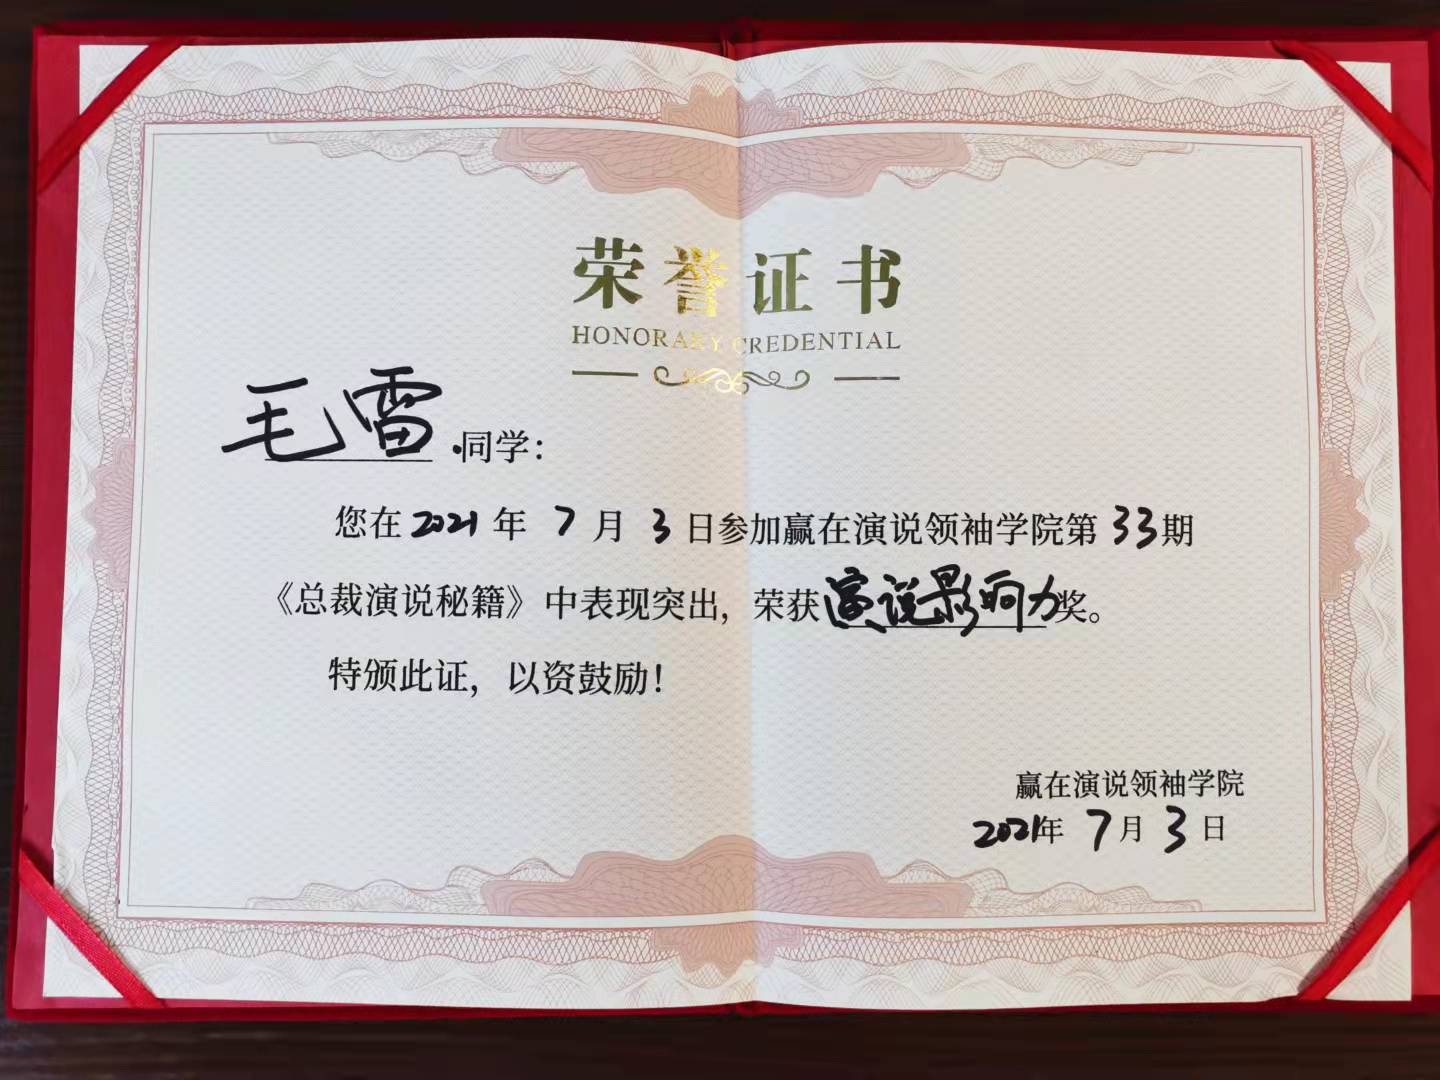 荣誉证书
HONORARY CREDENTIAL
毛雷.同学：
您在2021年7月3日参加赢在演说领袖学院第33期
《总裁演说秘籍》中表现突出，荣获演说影响力奖。
特颁此证，以资鼓励！
赢在演说领袖学院
2021年7月3日